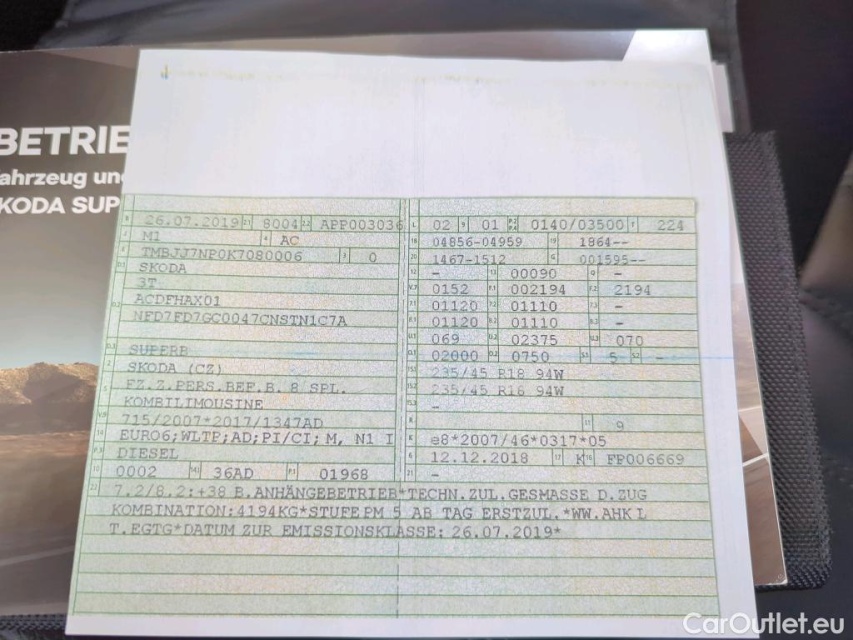 BETRIE
ahrzeug und
KODA SUP
26.07.2019 8004 APP003036
M1 AC
TMBJJ7NP0K7080006 0
SKODA
3T
ACDFHAX01
NFD7FD7GC0047CNSTN1C7A
SUPERB
SKODA (CZ)
FZ.Z.PERS.BEF.B. 8 SPL.
KOMBILIMOUSINE
715/2007*2017/1347AD
EURO6;WLTP;AD;PI/CI; M, N1 I
DIESEL
0002 36AD 01968
02 01 0140/03500 224
04856-04959 1864--
1467-1512 001595--
- 00090 -
0152 002194 2194
01120 01110 -
01120 01110 -
069 02375 070
02000 0750 5 -
235/45 R18 94W
235/45 R18 94W
-
9
e8*2007/46*0317*05
12.12.2018 K FP006669
-
7.2/8.2:+38 B.ANHÄNGEBETRIEB*TECHN.ZUL.GESMASSE D.ZUG
KOMBINATION:4194KG*STUFE PM 5 AB TAG ERSTZUL.*WW.AHK L
T.EGTG*DATUM ZUR EMISSIONSKLASSE: 26.07.2019*
CarOutlet.eu